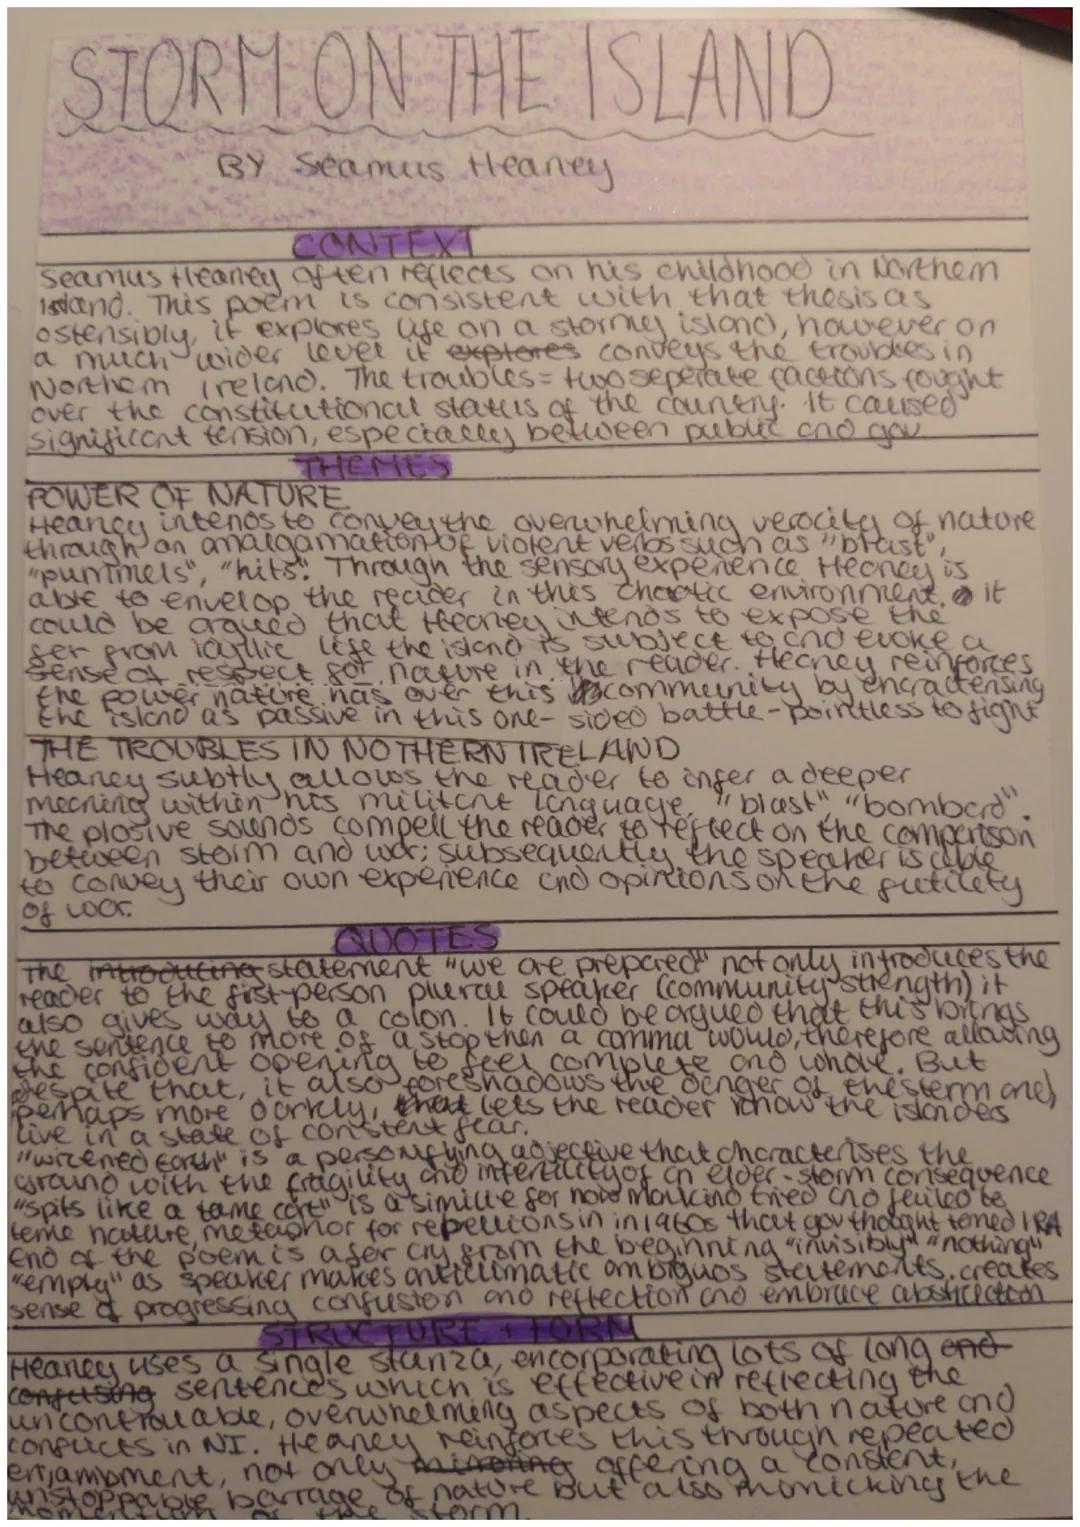 STORM ON THE ISLAND
BY Seamus Heaney
CONTEXT
Seamus Heaney often reflects on his childhood in Northern
Island. This poem is consistent with that thesis as
ostensibly, it explores life on a stormy island, however on
a much wider level it explores conveys the troubles in
Northern Ireland. The troubles = two seperate factions fought
over the constitutional status of the country. It caused
significant tension, especially between public and gov
THEMES
POWER OF NATURE
Heaney intends to convey the overwhelming verocity of nature
through an amalgamation of violent verbs such as "blast",
"pummels", "hits". Through the sensory experience Heaney is
able to envelop the reader in this chaotic environment. It
could be argued that Heaney intends to expose the
far from idyllic life the island is subject to and evoke a
sense of respect for nature in the reader. Heaney reinforces
the power nature has over this community by characterising
the island as passive in this one-sided battle - pointless to fight
THE TROUBLES IN NOTHERN IRELAND
Heaney subtly allows the reader to infer a deeper
meaning within his militant language. "blast", "bombard".
The plosive sounds compell the reader to reflect on the comparison
between storm and war; subsequently the speaker is able
to convey their own experience and opinions on the futility
of war.
QUOTES
The introducing statement "we are prepared" not only introduces the
reader to the first-person plural speaker (community strength) it
also gives way to a colon. It could be argued that this brings
the sentence to more of a stop then a comma would, therefore allowing
the confident opening to feel complete and whole. But
despite that, it also foreshadows the danger of the storm and,
perhaps more darkly, that lets the reader know the islanders
live in a state of constent fear.
"wizened earth" is a personifying adjective that characterises the
ground with the fragility and infertility of an elder - storm consequence
"spits like a tame cat" is a simile for how mankind tried and failed to
tame nature, metaphor for rebellions in in 1960s that gov thought tamed IRA
End of the poem is a far cry from the beginning "invisibly" "nothing"
"empty" as speaker makes anticlimatic ambiguos statements. creates
sense of progressing confusion and reflection and embrace abstraction
STRUCTURE + FORM
Heaney uses a single stanza, encorporating lots of long and
confusing sentences which is effective in reflecting the
uncontrollable, overwhelming aspects of both nature and
conflicts in NI. Heaney reinforces this through repeated
enjambment, not only mirroring offering a constent,
unstoppable barrage of nature but also mimicking the
momentum of the storm.